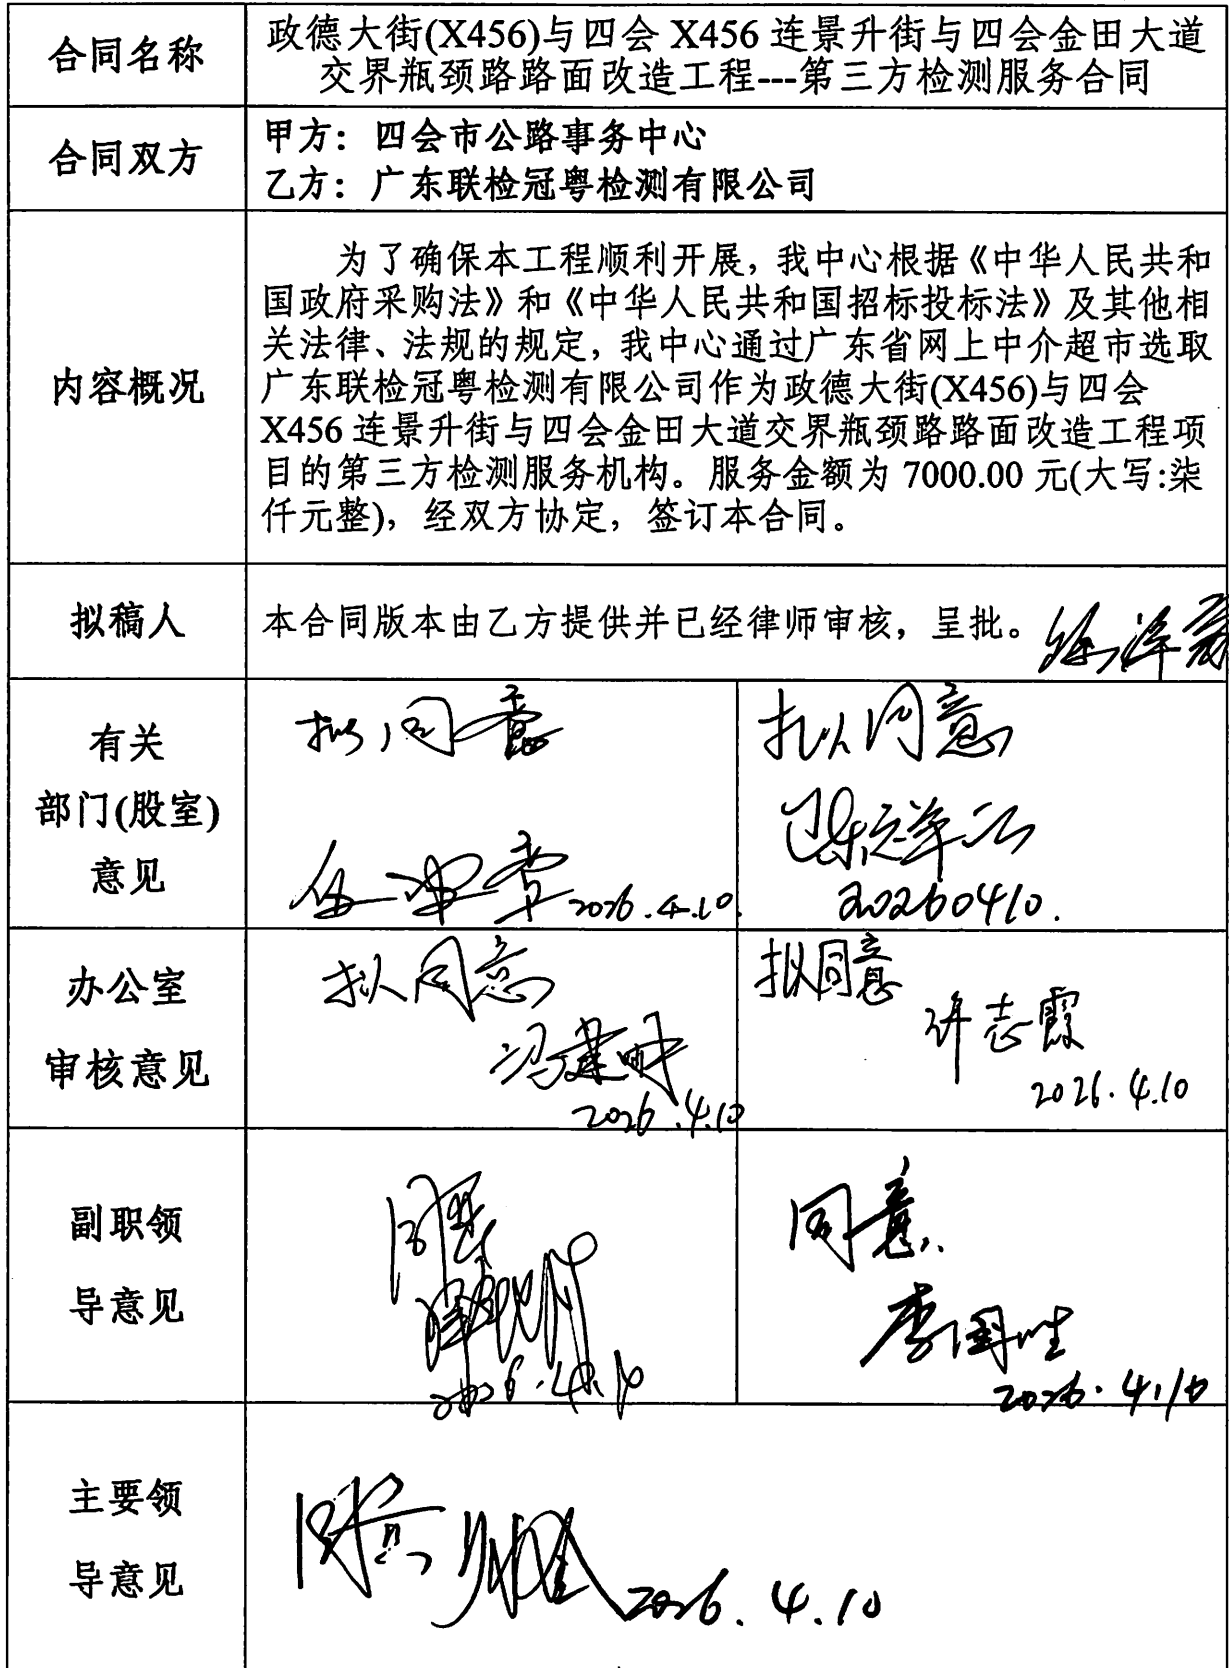 合同名称
政德大街(X456)与四会 X456 连景升街与四会金田大道
交界瓶颈路路面改造工程---第三方检测服务合同
合同双方
甲方：四会市公路事务中心
乙方：广东联检冠粤检测有限公司
内容概况
为了确保本工程顺利开展，我中心根据《中华人民共和
国政府采购法》和《中华人民共和国招标投标法》及其他相
关法律、法规的规定，我中心通过广东省网上中介超市选取
广东联检冠粤检测有限公司作为政德大街(X456)与四会
X456 连景升街与四会金田大道交界瓶颈路路面改造工程项
目的第三方检测服务机构。服务金额为 7000.00 元(大写:柒
仟元整)，经双方协定，签订本合同。
拟稿人
本合同版本由乙方提供并已经律师审核，呈批。
有关
部门(股室)
意见
拟同意
2026.4.10.
拟同意
20260410.
办公室
审核意见
拟同意
2026.4.10
拟同意
许志霞
2026.4.10
副职领
导意见
同意
2026.4.10
同意.
李国胜
2026.4.10
主要领
导意见
同意
2026.4.10